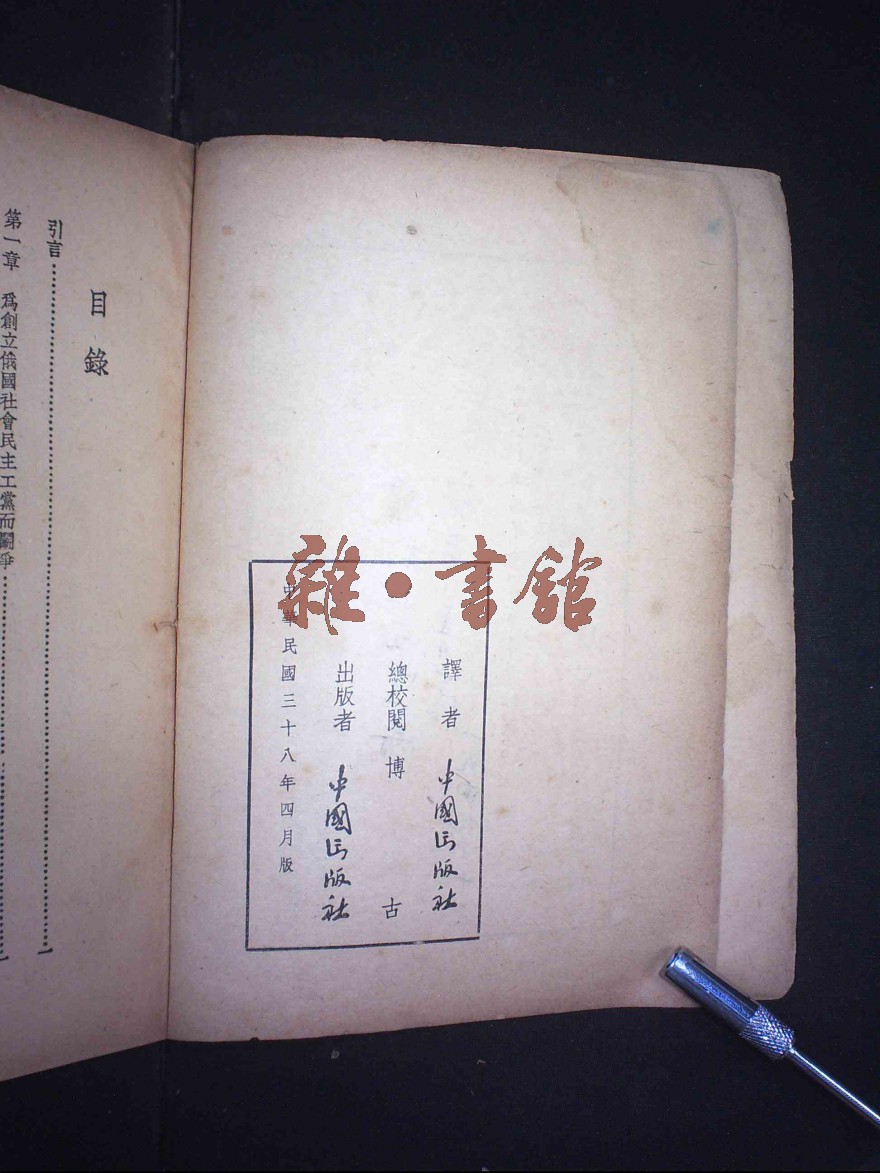 雜·書館
譯者 中國出版社
總校閱 博古
出版者 中國出版社
中華民國三十八年四月版
目錄
引言…………1
第一章 爲創立俄國社會民主工黨而鬭爭…………1